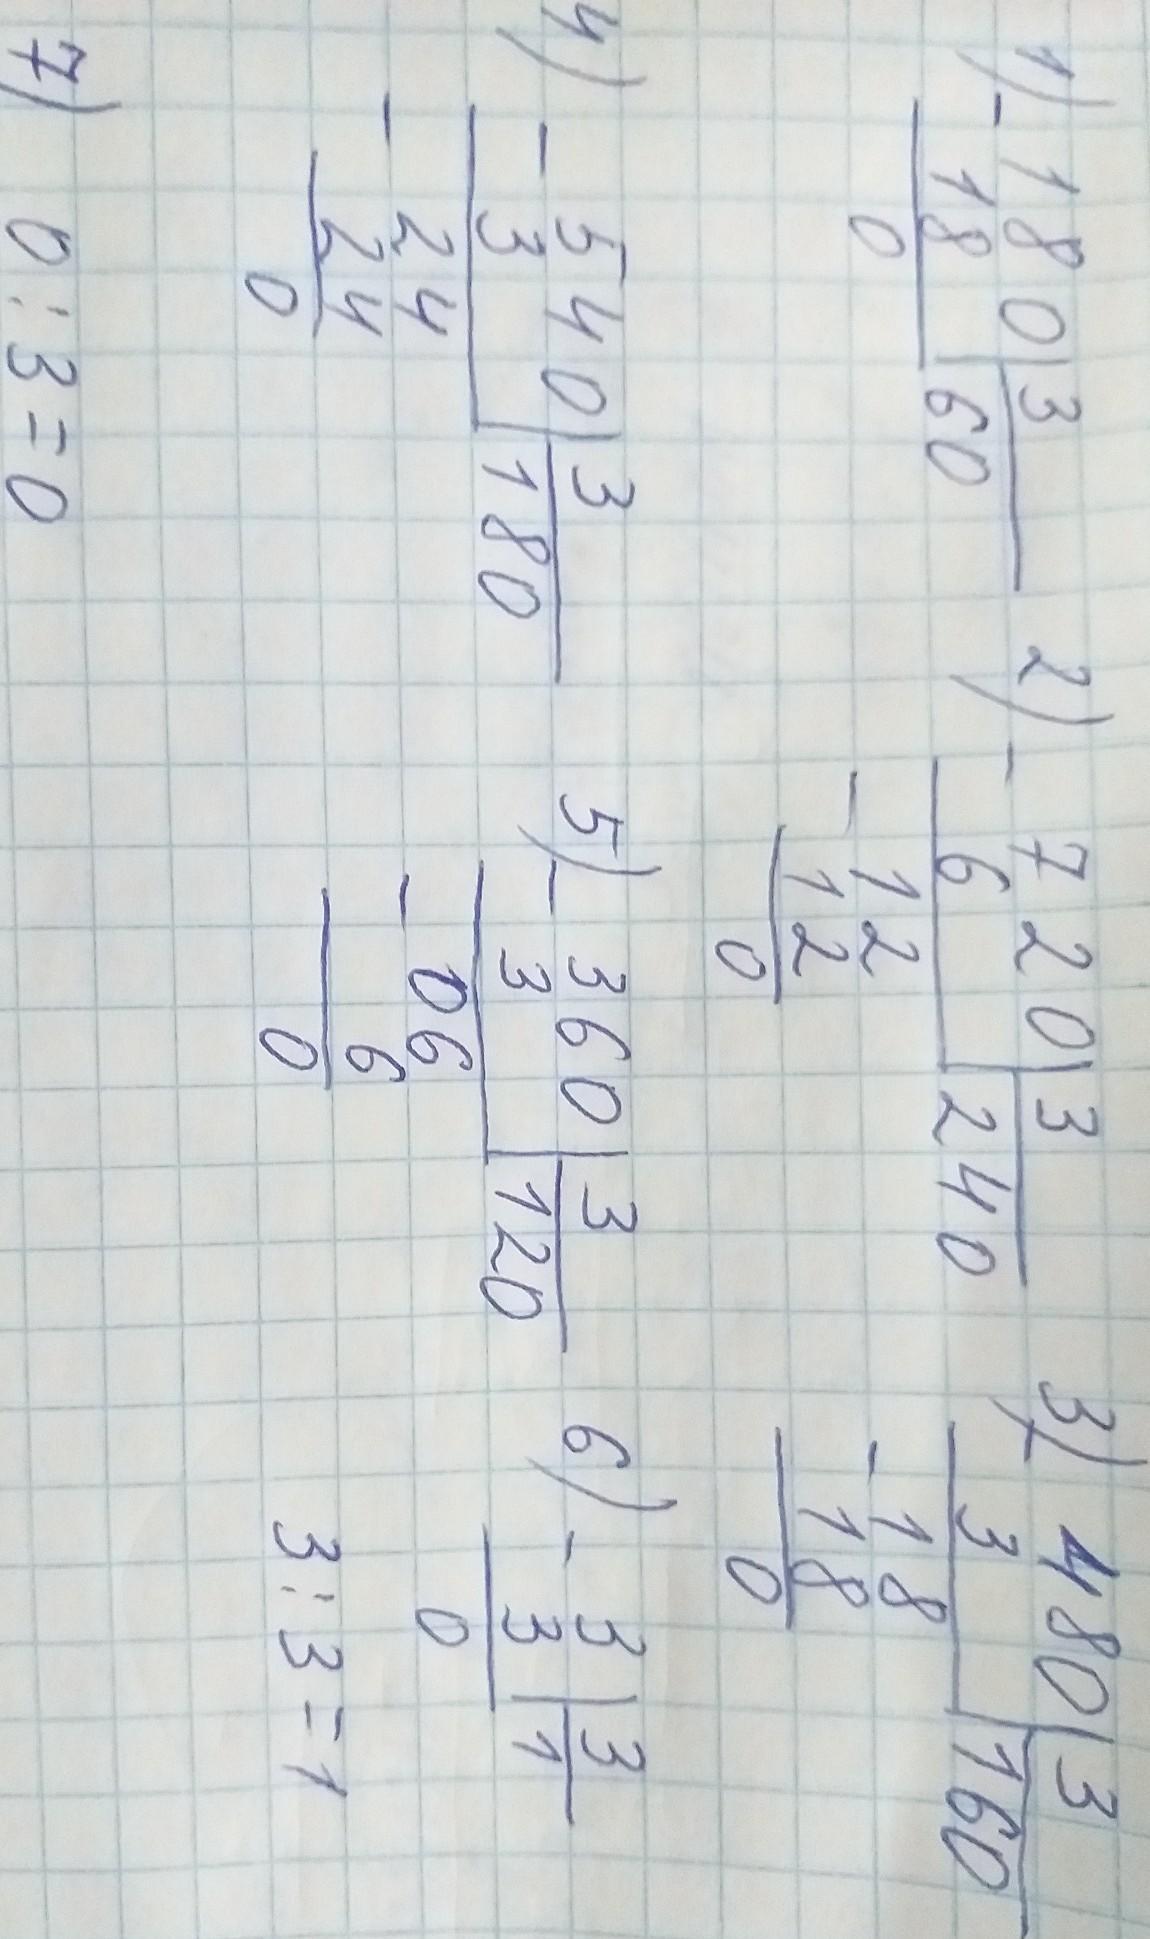 1) - 180 | 3 2) - 720 | 3 3) - 480 | 3
18 60 6 240 3 160
0 - 12 - 18
12 18
0 0
4) - 540 | 3 5) - 360 | 3 6) - 3 | 3
3 180 3 120 3 1
- 24 - 06 0
24 6 3 : 3 = 1
0 0
7) 0 : 3 = 0